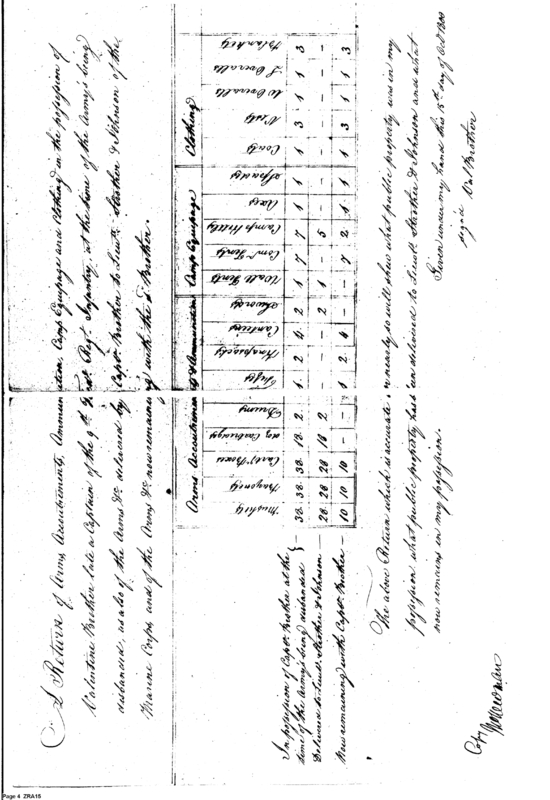 A Return of Arms, Accoutrements, Ammunition, Camp Equipage and Clothing in the possession of
Valentine Brother late a Captain of the 9th Regt. Infantry, at the time of the Army's being
disbanded, as also of the Arms &c delivered by Captn. Brother to Lieuts. Strother & Johnson of the
Marine Corps, and of the Arms &c now remaining with the sd. Brother.
Arms Accoutrements & Ammunition Camp Equipage Clothing
Muskets Bayonets Cartg. Boxes Cartridges Drums Fifes Knapsacks Canteens Swords Wall Tents Comn. Tents Camp Kettles Axes Spades Coats Vests W Overalls L Overalls Blankets
In possession of Captn. Brother at the
time of the Army's being disbanded } 38 38 38 18 2 1 2 4 2 1 7 7 1 1 1 3 1 1 3
Delivered to Lieuts. Strother & Johnson — 28 28 28 18 2 - - - 2 1 - 5 - - - - - - -
Now remaining with Captn. Brother — 10 10 10 - - 1 2 4 - - 7 2 1 1 1 3 1 1 3
The above Return which is accurate or nearly so will shew what public property was in my
possession what public property has been delivered to Lieuts. Strother & Johnson and what
now remains in my possession.
Given under my hand this 15th day of Octr. 1800
signed Val Brother
Copy
Page 4 ZRA15